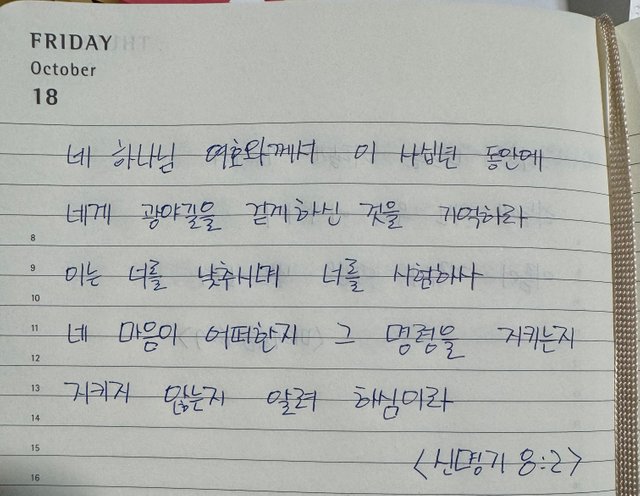 FRIDAY
October
18
네 하나님 여호와께서 이 사십년 동안에
네게 광야길을 걷게 하신 것을 기억하라
8
9 이는 너를 낮추시며 너를 시험하사
10
11 네 마음이 어떠한지 그 명령을 지키는지
12
13 지키지 않는지 알려 하심이라
14
15
<신명기 8:2>
16